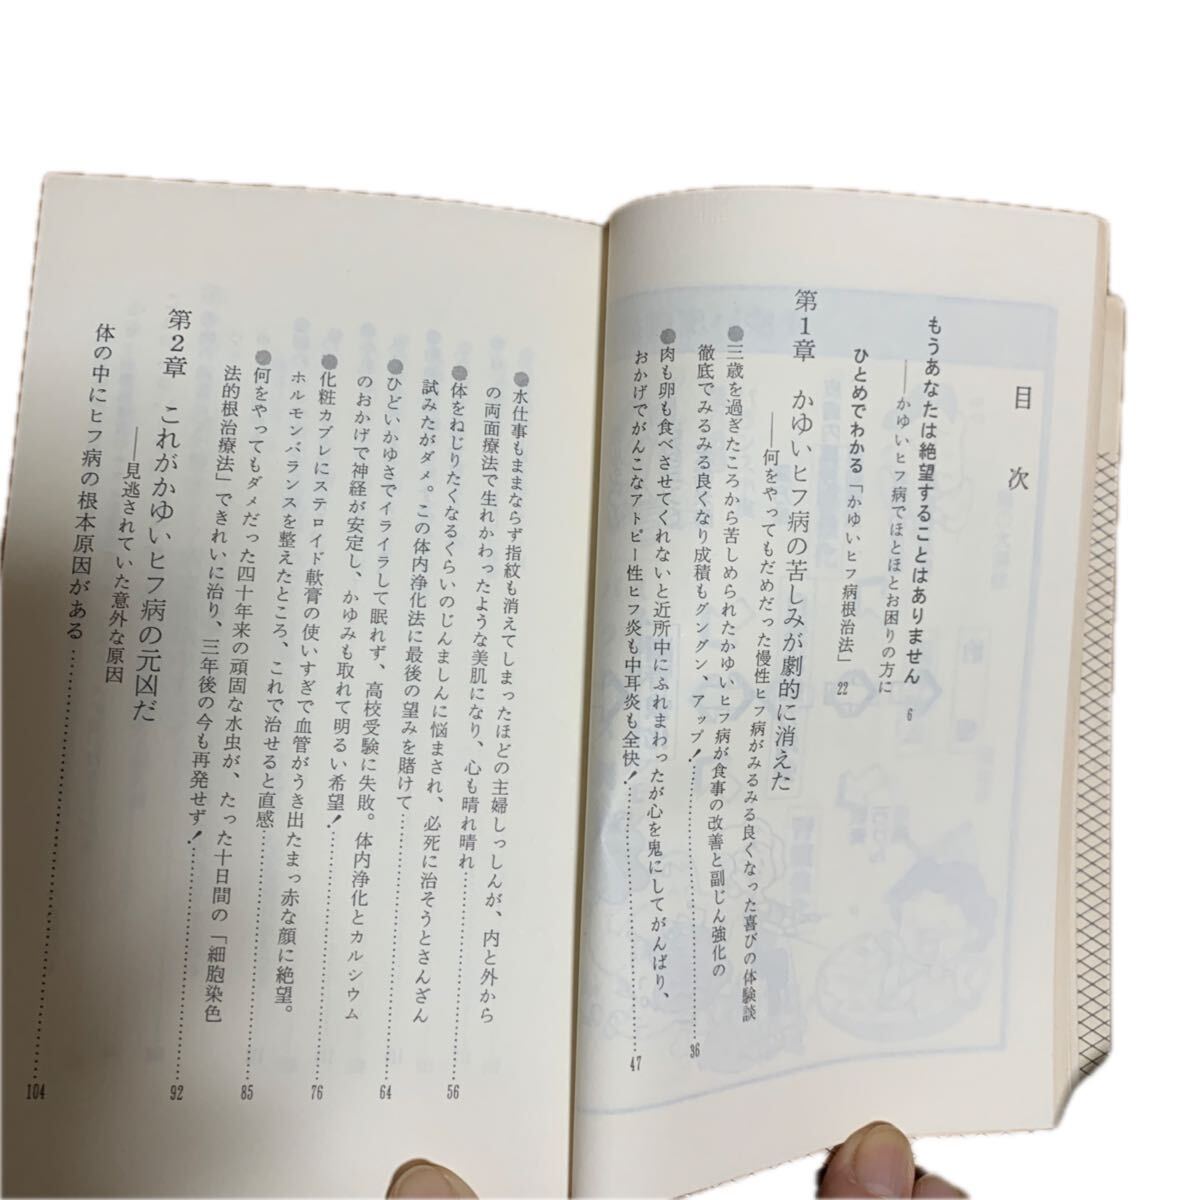 目次
もうあなたは絶望することはありません
──かゆいヒフ病でほとほとお困りの方に 6
ひとめでわかる「かゆいヒフ病根治法」 22
第1章 かゆいヒフ病の苦しみが劇的に消えた
──何をやってもだめだった慢性ヒフ病がみるみる良くなった喜びの体験談
●三歳を過ぎたころから苦しめられたかゆいヒフ病が食事の改善と副じん強化の
徹底でみるみる良くなり成績もグングン、アップ!…… 36
●肉も卵も食べさせてくれないと近所中にふれまわったが心を鬼にしてがんばり、
おかげでがんこなアトピー性ヒフ炎も中耳炎も全快!…… 47
●水仕事もままならず指紋も消えてしまったほどの主婦しっしんが、内と外から
の両面療法で生れかわったような美肌になり、心も晴れ晴れ…… 56
●体をねじりたくなるくらいのじんましんに悩まされ、必死に治そうとさんざん
試みたがダメ。この体内浄化法に最後の望みを賭けて…… 64
●ひどいかゆさでイライラして眠れず、高校受験に失敗。体内浄化とカルシウム
のおかげで神経が安定し、かゆみも取れて明るい希望!…… 76
●化粧カブレにステロイド軟膏の使いすぎで血管がうき出たまっ赤な顔に絶望。
ホルモンバランスを整えたところ、これで治せると直感…… 85
●何をやってもダメだった四十年来の頑固な水虫が、たった十日間の「細胞染色
法的根治療法」できれいに治り、三年後の今も再発せず!…… 92
第2章 これがかゆいヒフ病の元凶だ
──見逃されていた意外な原因
体の中にヒフ病の根本原因がある…… 104